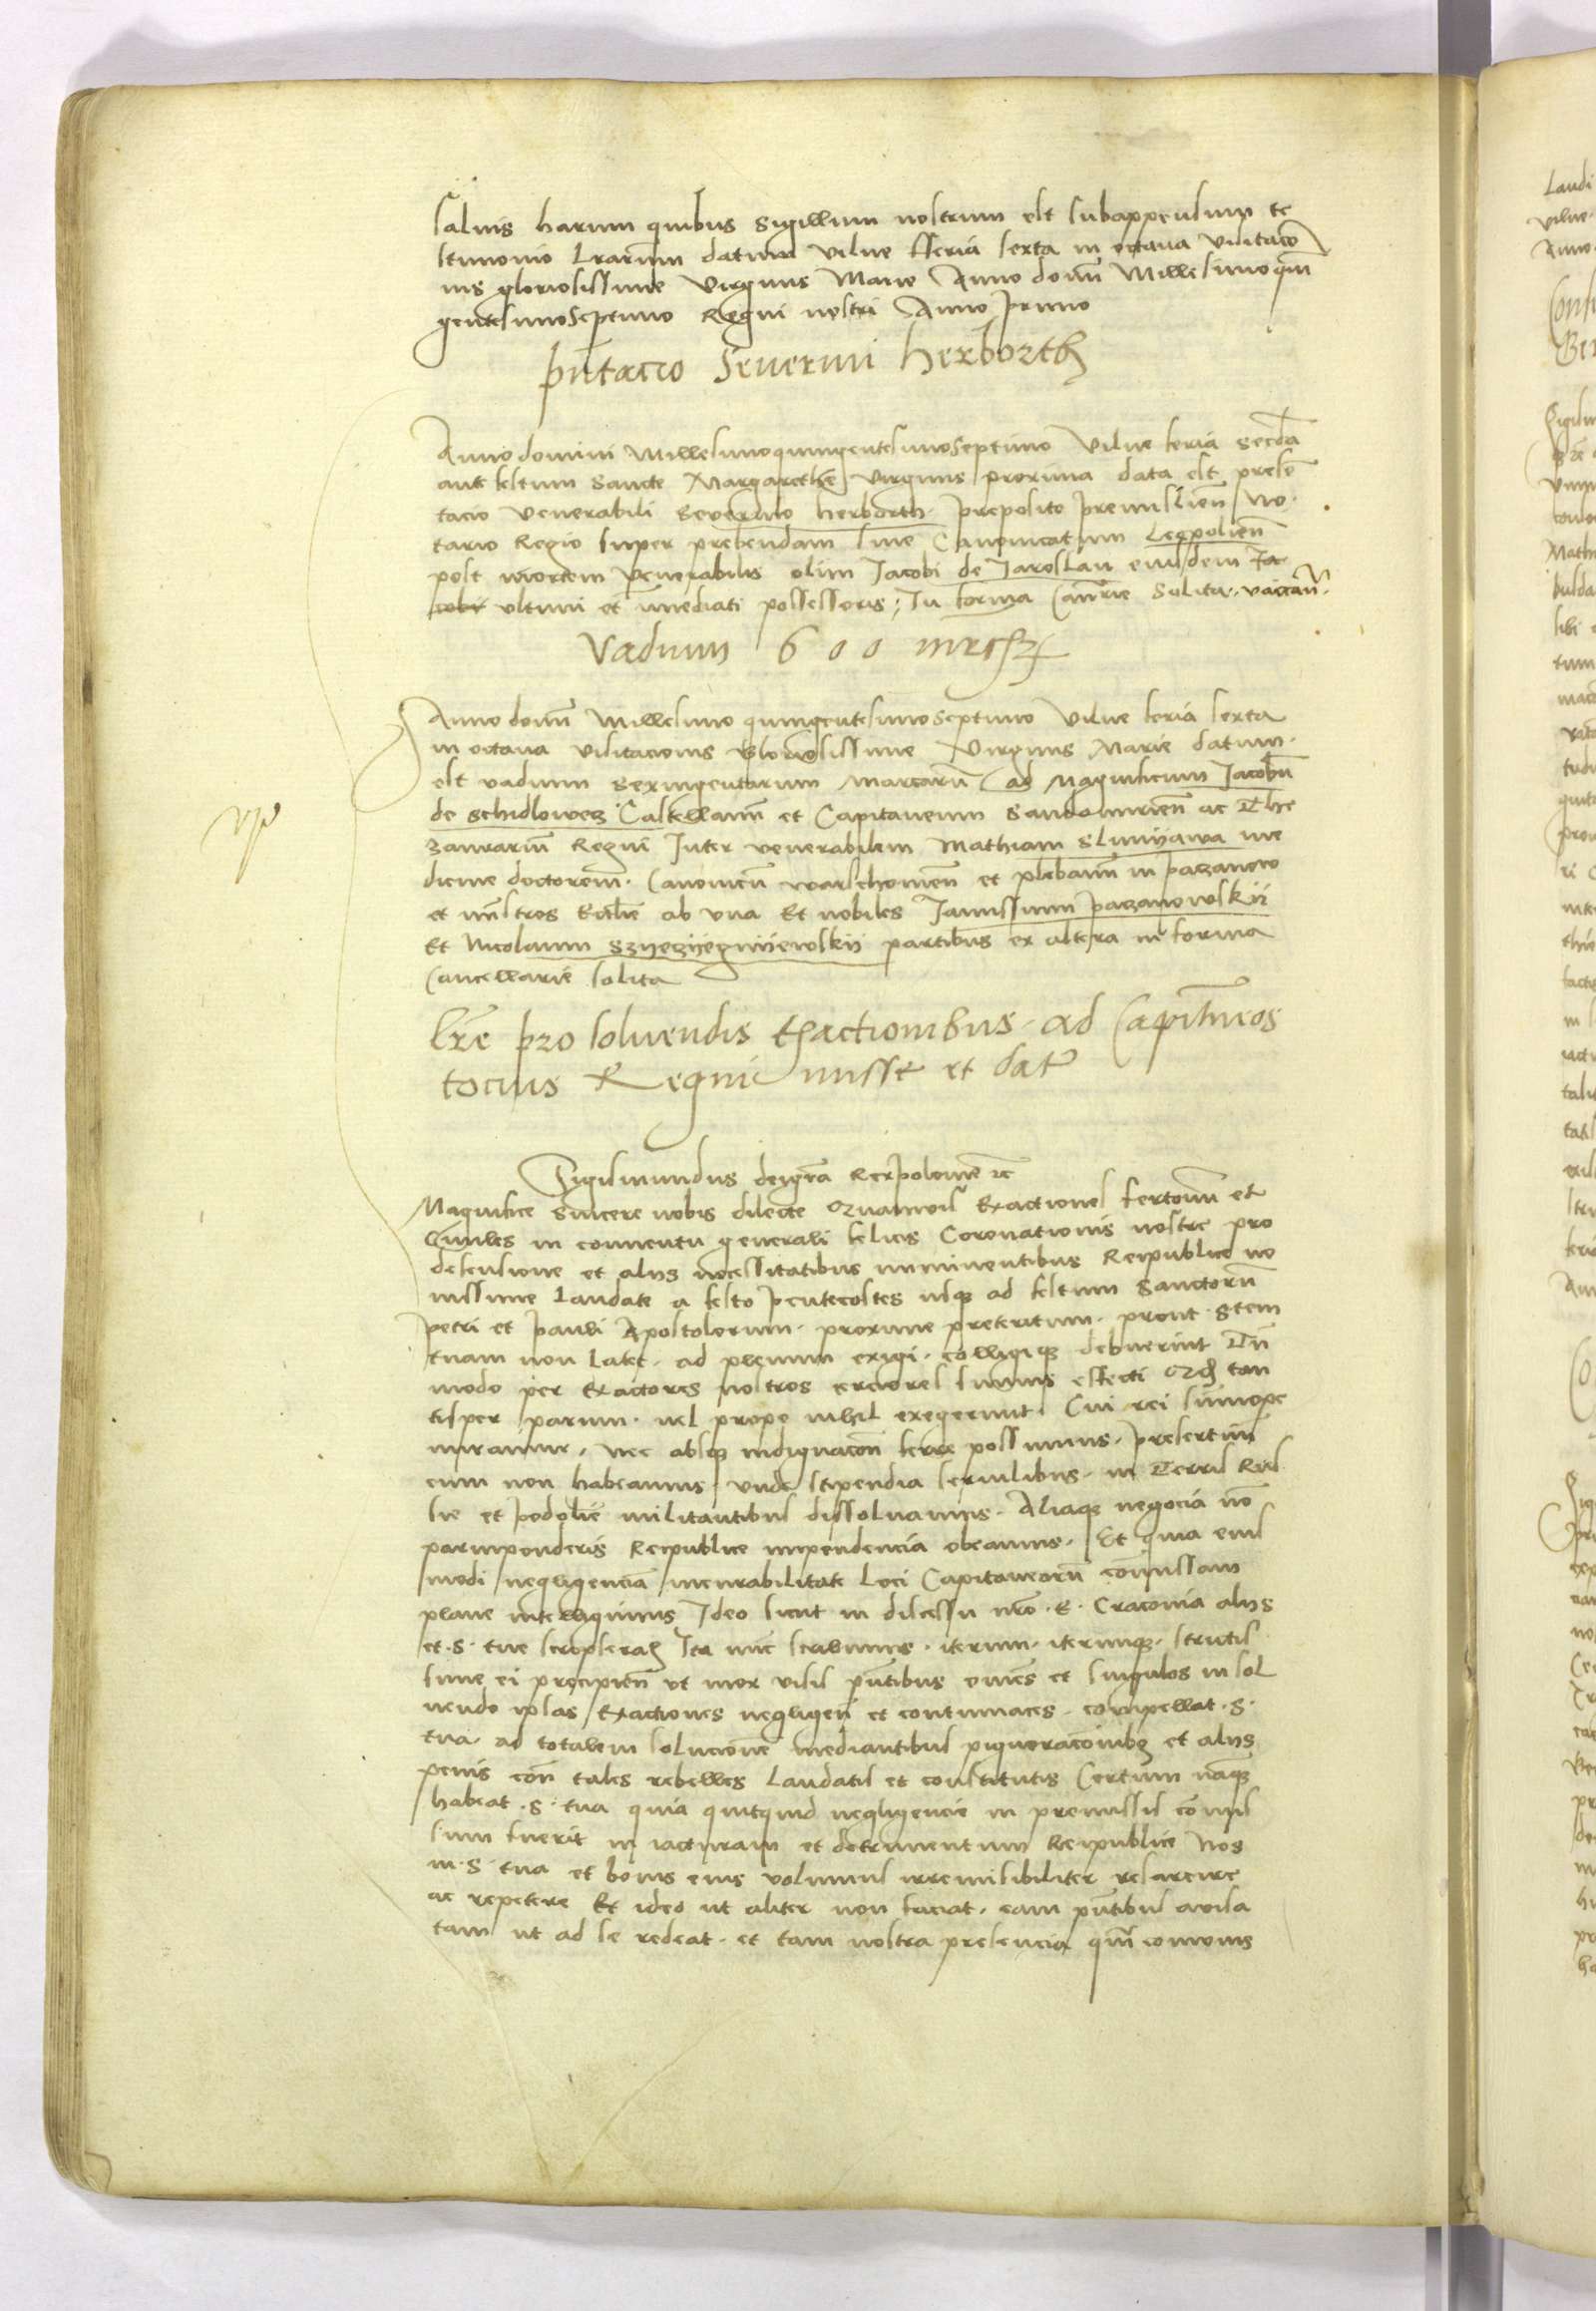 salvis harum quibus Sigillum nostrum est subappensum te
stimonio Lrarum datum Vilne fferia sexta in octava visitacio
nis gloriosissime Virginis Marie Anno domi Millesimo quin
gentesimo Septimo Regni nostri Anno primo
pntacio Severini Herborth
Anno domini Millesimo quingentesimo Septimo Vilne feria secda
ante festum Sancte Margarethe virginis proxima data est presen
tacio venerabili Severino herborth preposito premislien No
tario Regio super prebendam sine Canonicatum Leopolien
post mortem venerabilis olim Jacobi de Jaroslau eiusdem Ja
cobi ultimi et imediati possessoris, In forma Cancrie Solita. vaccan.
Vadium 600 mrcs
Anno domi Millesimo quingentesimo Septimo Vilne feria sexta
in octava visitacionis Gloriosissime Virginis Marie datum
est vadium sexingentarum Marcaru ad Magnificum Jacobu
de schidlowez Castellanu et Capitaneum Sandomirien ac The
zaurariu Regni Inter venerabilem Mathiam Slunijawa me
dicine doctorem. Canonicu warschouien et plebanu in pazanow
et mnstros Ecclie ab una Et nobiles Janussium pazanowskij
Et Nicolaum Szyezijegnijewskij partibus ex altera in forma
Cancellarie solita
Lre pro solvendis Exactionibus. ad Capitneos
tocius Regni misse et dat
Sigismundus dei gra Rex polonie zc
Magnifice Sincere nobis dilecte Quamvis Exactiones fertonu et
in conventu generali felicis Coronationis nostre pro
defensione et aliis necessitatibus imminentibus Reipublice no
vissime Laudate a festo pentecostes usq ad festum Sanctoru
petri et pauli Apostolorum. proxime preteritum. prout Stem
tuam non latet. ad plenum exigi. colligiq debuerint Tn
modo per Exactores nostros certiores sumus effecti Qd tan
tisper parum. vel prope nihil exegerunt. Cui rei sumope
miramur. nec absq indignacon ferre possumus. presertim
cum non habeamus. unde stipendia servilibus. in Terris Rus
sie et podolie militantibus dissolvamus. Aliaq negocia no
parviponderis Reipublice impendencia obeamus. Et quia eius
modi negligenciam incurabilitate Loci Capitaneoru comissam
plane intelligimus Ideo sicut in discessu nro. E. Craconia aliis
et .S. tue Ita nuc scribimus. iterum. iterumq. strictis
sime ei precipien ut mox visis pntibus omnes et singulos in sol
vendo ipsas Exactiones negligen et contumaces. compellat .S.
tua. ad totalem solucione mediantibus pigneracionibq et aliis
penis con tales rebelles Laudatis et constitutis Certum naq
habeat .S. tua quia quitquid negligencie in premissis comis
sum fuerit in iacturam et detrimentum Reipublice Nos
in .S. tua et bonis eius volumus irremisibiliter resarcire
ac repetere Et ideo ut aliter non faciat. eam pntibus avisa
tam ut ad se redeat. et tam nostra presencia qm comonis